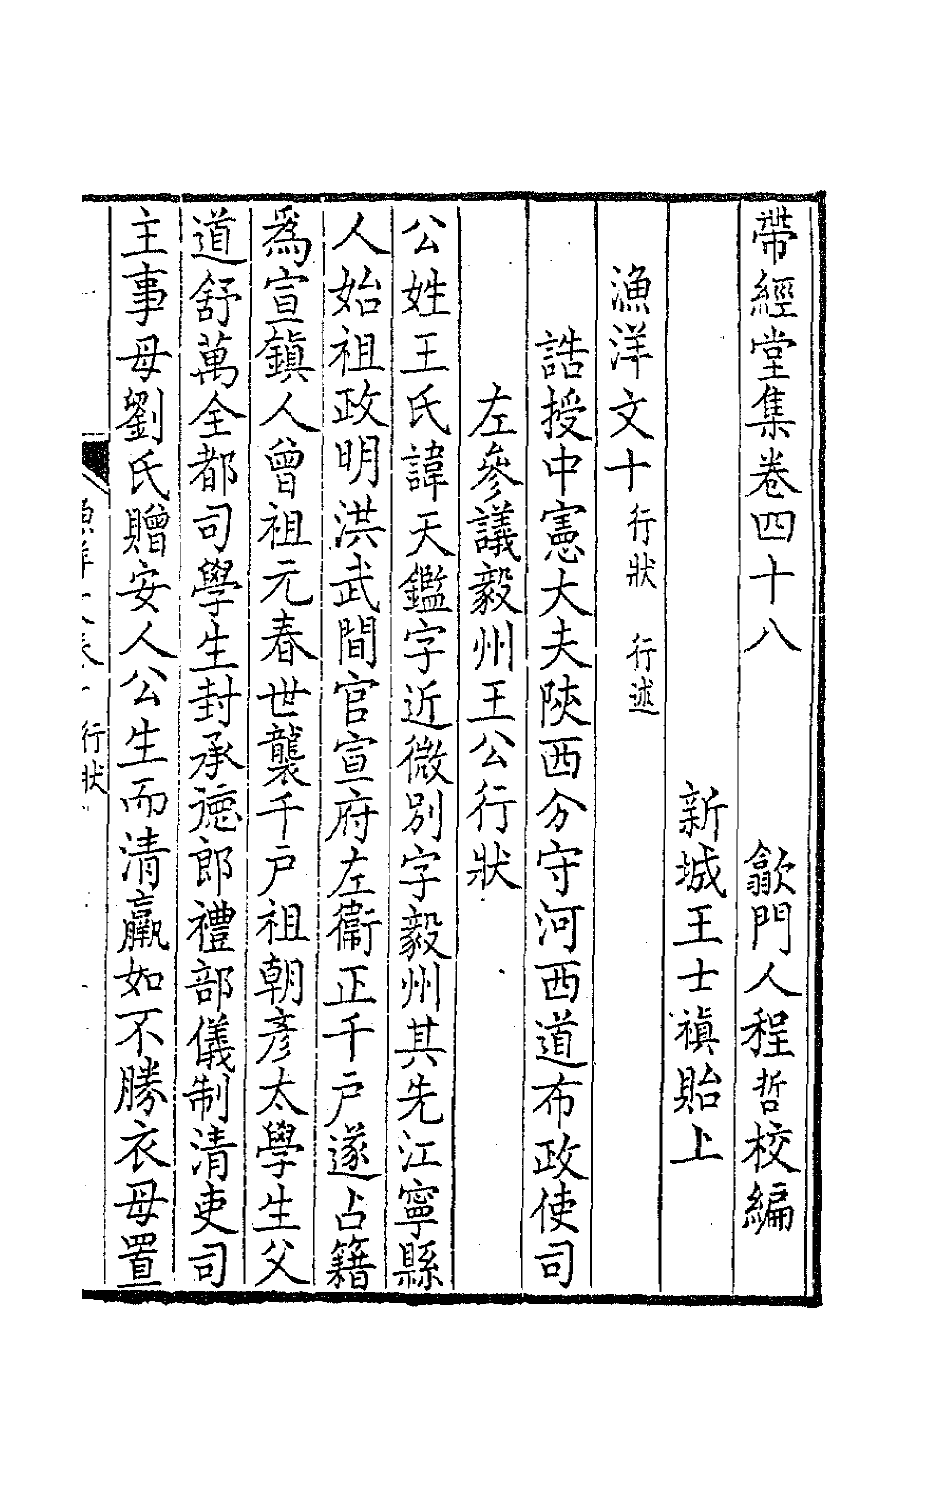 帶經堂集卷四十八　歙門人程哲校編
新城王士禛貽上
漁洋文十 行狀　行述
誥授中憲大夫陝西分守河西道布政使司
左參議毅州王公行狀
公姓王氏諱天鑑字近微別字毅州其先江寧縣
人始祖政明洪武間官宣府左衞正千戶遂占籍
爲宣鎭人曾祖元春世襲千戶祖朝彥太學生父
道舒萬全都司學生封承德郎禮部儀制清吏司
主事母劉氏贈安人公生而清羸如不勝衣母置
行狀